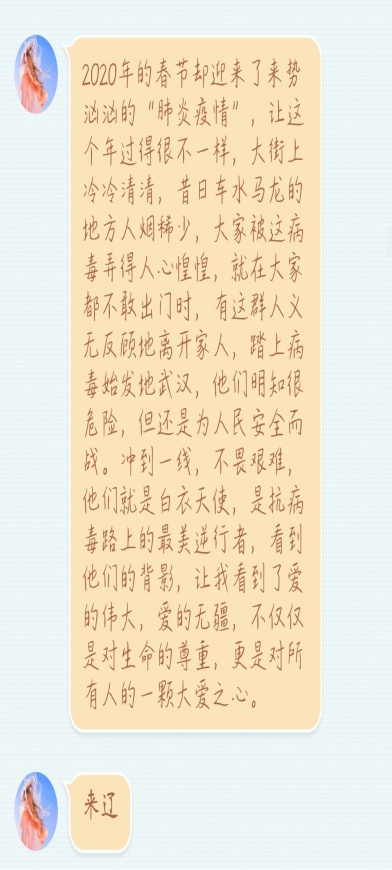 2020年的春节却迎来了来势
汹汹的“肺炎疫情”，让这
个年过得很不一样，大街上
冷冷清清，昔日车水马龙的
地方人烟稀少，大家被这病
毒弄得人心惶惶，就在大家
都不敢出门时，有这群人义
无反顾地离开家人，踏上病
毒始发地武汉，他们明知很
危险，但还是为人民安全而
战。冲到一线，不畏艰难，
他们就是白衣天使，是抗病
毒路上的最美逆行者，看到
他们的背影，让我看到了爱
的伟大，爱的无疆，不仅仅
是对生命的尊重，更是对所
有人的一颗大爱之心。
来辽